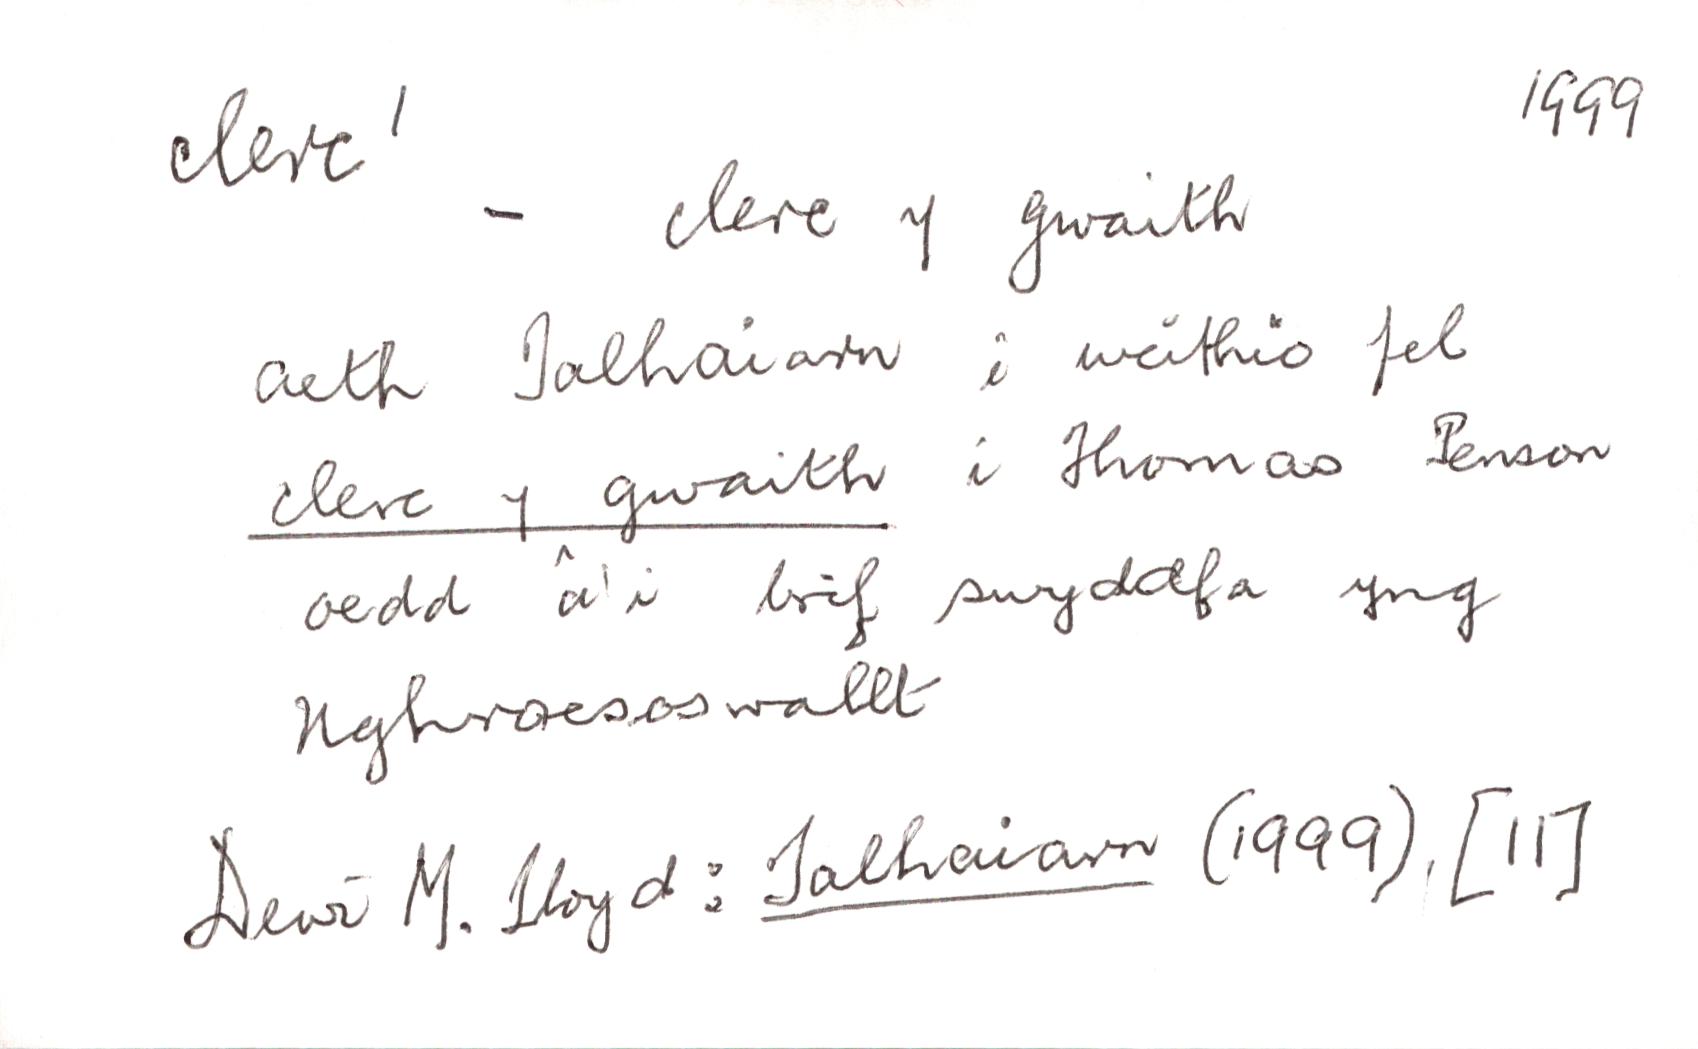 clerc¹ 1999
– clerc y gwaith
aeth Talhaiarn i weithio fel
clerc y gwaith i Thomas Penson
oedd â'i brif swyddfa yng
Nghroesoswallt
Dewi M. Lloyd: Talhaiarn (1999), [11]